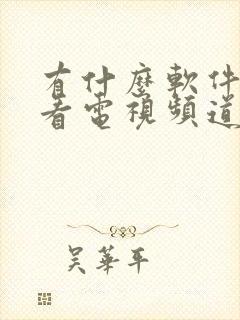 有什麼軟件
看電視頻道
吳華平